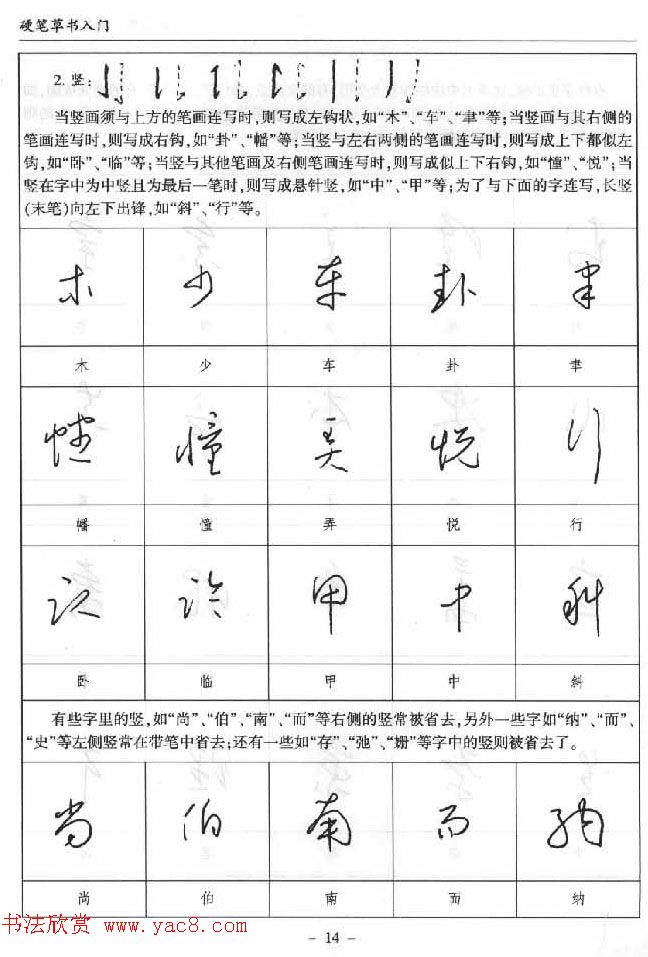 硬笔草书入门
2. 竖:
当竖画须与上方的笔画连写时,则写成左钩状,如“木”、“车”、“聿”等;当竖画与其右侧的
笔画连写时,则写成右钩,如“卦”、“幡”等;当竖与左右两侧的笔画连写时,则写成上下都似左
钩,如“卧”、“临”等;当竖与其他笔画及右侧笔画连写时,则写成似上下右钩,如“憧”、“悦”;当
竖在字中为中竖且为最后一笔时,则写成悬针竖,如“中”、“甲”等;为了与下面的字连写,长竖
(末笔)向左下出锋,如“斜”、“行”等。
木 少 车 卦 聿
木 少 车 卦 聿
幡 憧 弄 悦 行
幡 憧 弄 悦 行
卧 临 甲 中 斜
卧 临 甲 中 斜
有些字里的竖,如“尚”、“伯”、“南”、“而”等右侧的竖常被省去,另外一些字如“纳”、“而”、
“史”等左侧竖常在带笔中省去;还有一些如“存”、“弛”、“姗”等字中的竖则被省去了。
尚 伯 南 而 纳
尚 伯 南 而 纳
书法欣赏 www.yac8.com
- 14 -